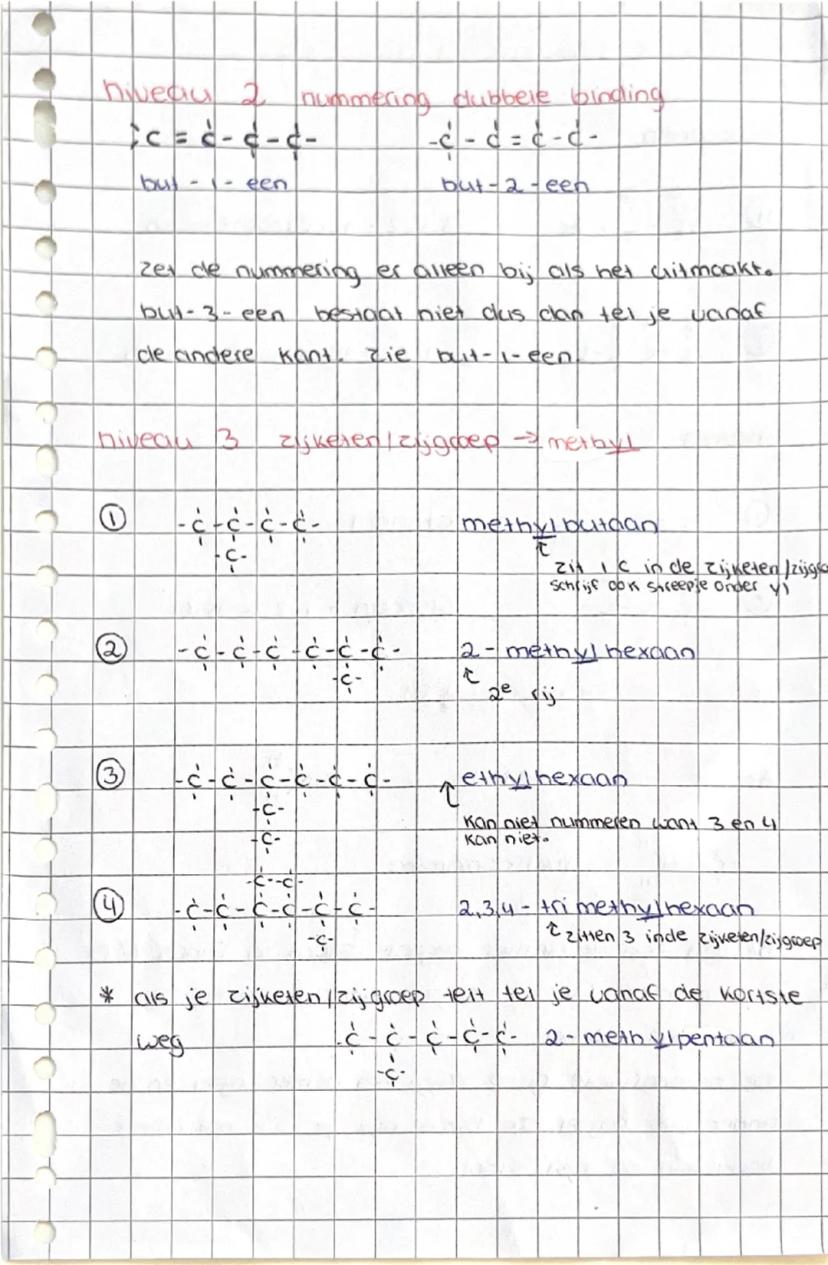 niveau 2 nummering dubbele binding
C = C - C - C -
- C - C = C - C -
but - 1 - een
but - 2 - een
zet de nummering er alleen bij als het uitmaakt.
but - 3 - een bestaat niet dus dan tel je vanaf
de andere kant. zie but - 1 - een.
niveau 3 zijketen/zijgroep → methyl
① - C - C - C - C - methylbutaan
- C -
↑ zit 1 C in de zijketen/zijgro
schrijf ook streepje onder yl
② - C - C - C - C - C - C - 2 - methylhexaan
- C -
↑ 2e rij
③ - C - C - C - C - C - C - ethylhexaan
- C -
- C -
↑ kan niet nummeren want 3 en 4
kan niet.
- C - - C -
④ - C - C - C - C - C - C - 2,3,4 - trimethylhexaan
- C -
↑ zitten 3 in de zijketen/zijgroep
* als je zijketen/zijgroep telt tel je vanaf de kortste
weg - C - C - C - C - C - 2 - methylpentaan
- C -